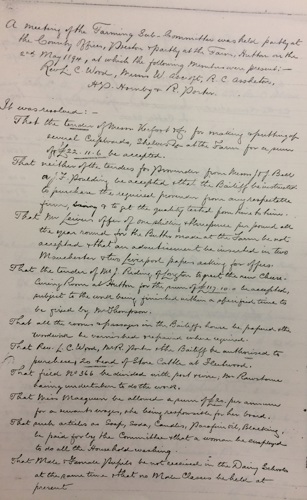 A meeting of the Farming Sub-Committee was held partly at
the County Offices, Preston & partly at the Farm, Hutton on the
2nd May 1894, at which the following Members were present:-
Rev. L. C. Wood, Messrs W. Ascroft, R. C. Assheton,
H. P. Hornby & R. Parker.
It was resolved:-
That the tender of Messrs for making & putting up
several Cupboards, Shelves &c at the Farm for a sum
of £22.11.6 be accepted.
That neither of the tenders for Provender from Messrs J & J Ball
or J. be accepted & that the Bailiff be instructed
to purchase the required provender from any respectable
firm, & to get the quality tested from time to time.
That Mr offer of one shilling & threepence per pound all
the year round for the Butter made at the Farm be not
accepted & that an advertisement be inserted in two
Manchester & two Liverpool papers asking for offers.
That the tender of of to erect the new Cheese
Curing Room at Hutton for the sum of £117.10.0 be accepted,
subject to the work being finished within a specified time to
be fixed by Mr Thompson.
That all the rooms & passages in the Bailiff's house be papered & the
woodwork be varnished & papered where required.
That Rev. L. C. Wood, Mr R. Parker & the Bailiff be authorised to
purchase 20 head of Store Cattle at Fleetwood.
That field No 366 be divided with post & wire, Mr Rawsthorne
having undertaken to do the work.
That Miss be allowed a sum of per annum
for a servant's wages, she being responsible for her board.
That such articles as Soap, Soda, Candles, Paraffin Oil, Blacking,
be paid for by the Committee & that a woman be employed
to do all the Household washing.
That Male & Female Pupils be not received in the Dairy Schools
at the same time & that no Male Classes be held at
present.